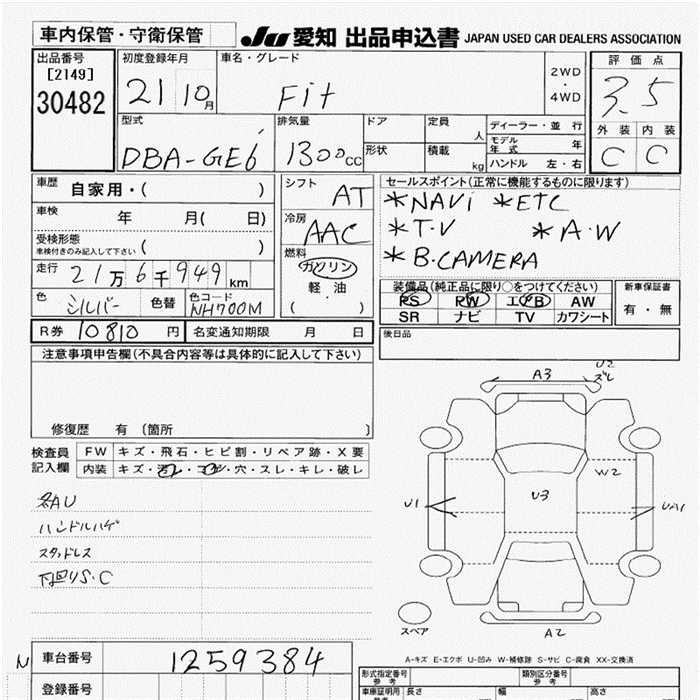 車内保管・守衛保管
JU 愛知 出品申込書 JAPAN USED CAR DEALERS ASSOCIATION
出品番号
[2149]
30482
初度登録年月
21 10月
車名・グレード
Fit
2WD
・
4WD
評価点
3.5
外装 内装
C C
型式
DBA-GE6
排気量
1300cc
ドア
定員 人
ディーラー・並行
モデル年式 年
形状
積載 kg
ハンドル 左・右
車歴 自家用・( )
車検 年 月( 日)
受検形態
車検付きのみ記入して下さい ( )
走行 21万6千949km
色 シルバー 色替 色コード NH700M
シフト AT
冷房 AAC
燃料
ガソリン
軽・油
( )
セールスポイント(正常に機能するものに限ります)
*NAVi *ETC
*T・V *A・W
*B・CAMERA
装備品(純正品に限り○をつけてください)
PS PW エアB AW
SR ナビ TV カワシート
新車保証書
有・無
R券 10810円 名変通知期限 月 日
後日品
注意事項申告欄(不具合内容等は具体的に記入して下さい)
修復歴 有 〔箇所 〕
検査員
記入欄
FW キズ・飛石・ヒビ割・リペア跡・X要
内装 キズ・汚レ・コゲ・穴・スレ・キレ・破レ
各AU
ハンドルハゲ
スタッドレス
下回りS・C
U2
ズレ
A3
W2
U3
U1
UA1
A2
スペア
A-キズ E-エクボ U-凹み W-補修跡 S-サビ C-腐食 XX-交換済
N
車台番号 1259384
登録番号
形式指定番号
参考
類別区分番号
参考
車庫証明用
長さ 幅 高さ